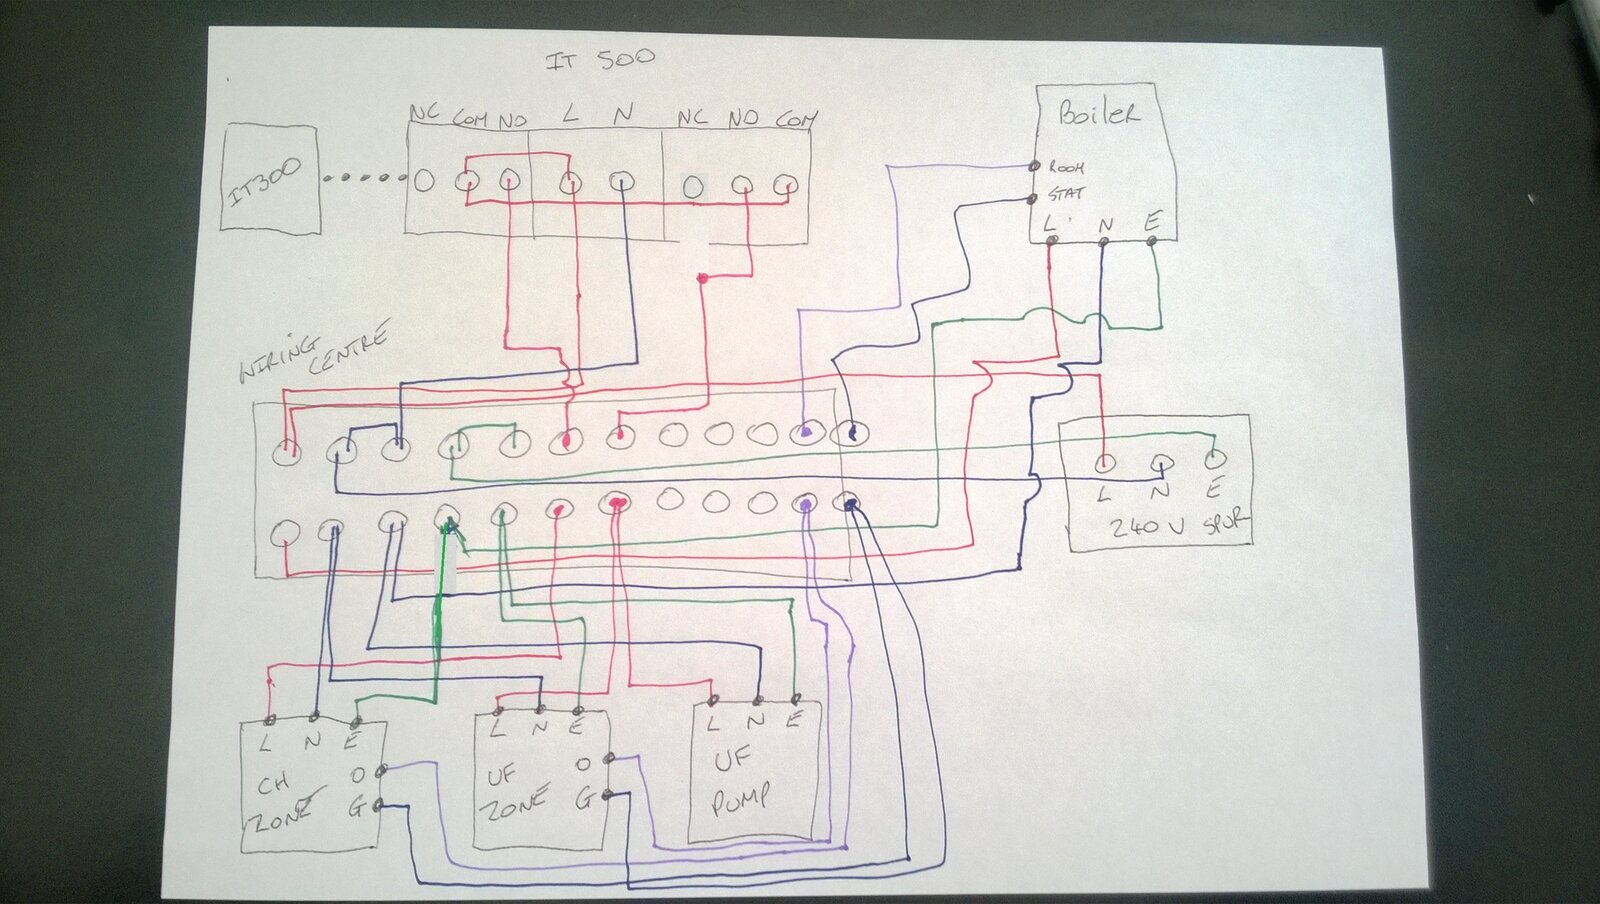 IT 500
NC COM NO L N NC NO COM
IT300
Boiler
ROOM
STAT
L N E
WIRING
CENTRE
L N E
240V SPUR
L N E
CH
ZONE
O
G
L N E
UF
ZONE
O
G
L N E
UF
PUMP